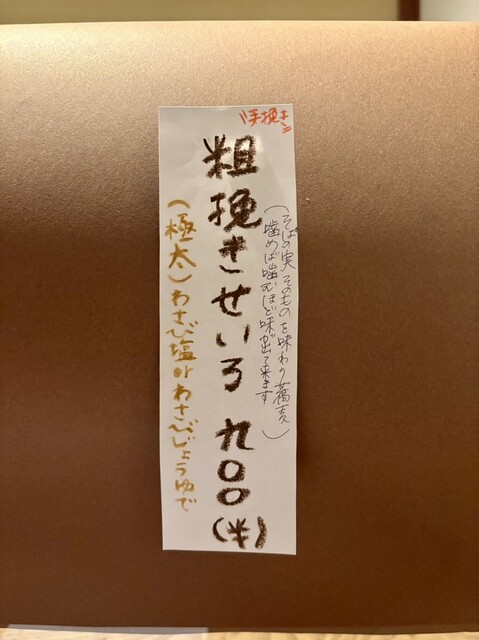 手挽き
(そばの実そのものを味わう蕎麦
噛めば噛むほど味が出て来ます)
粗挽きせいろ 九〇〇(半)
(極太)わさび塩orわさびじょうゆで